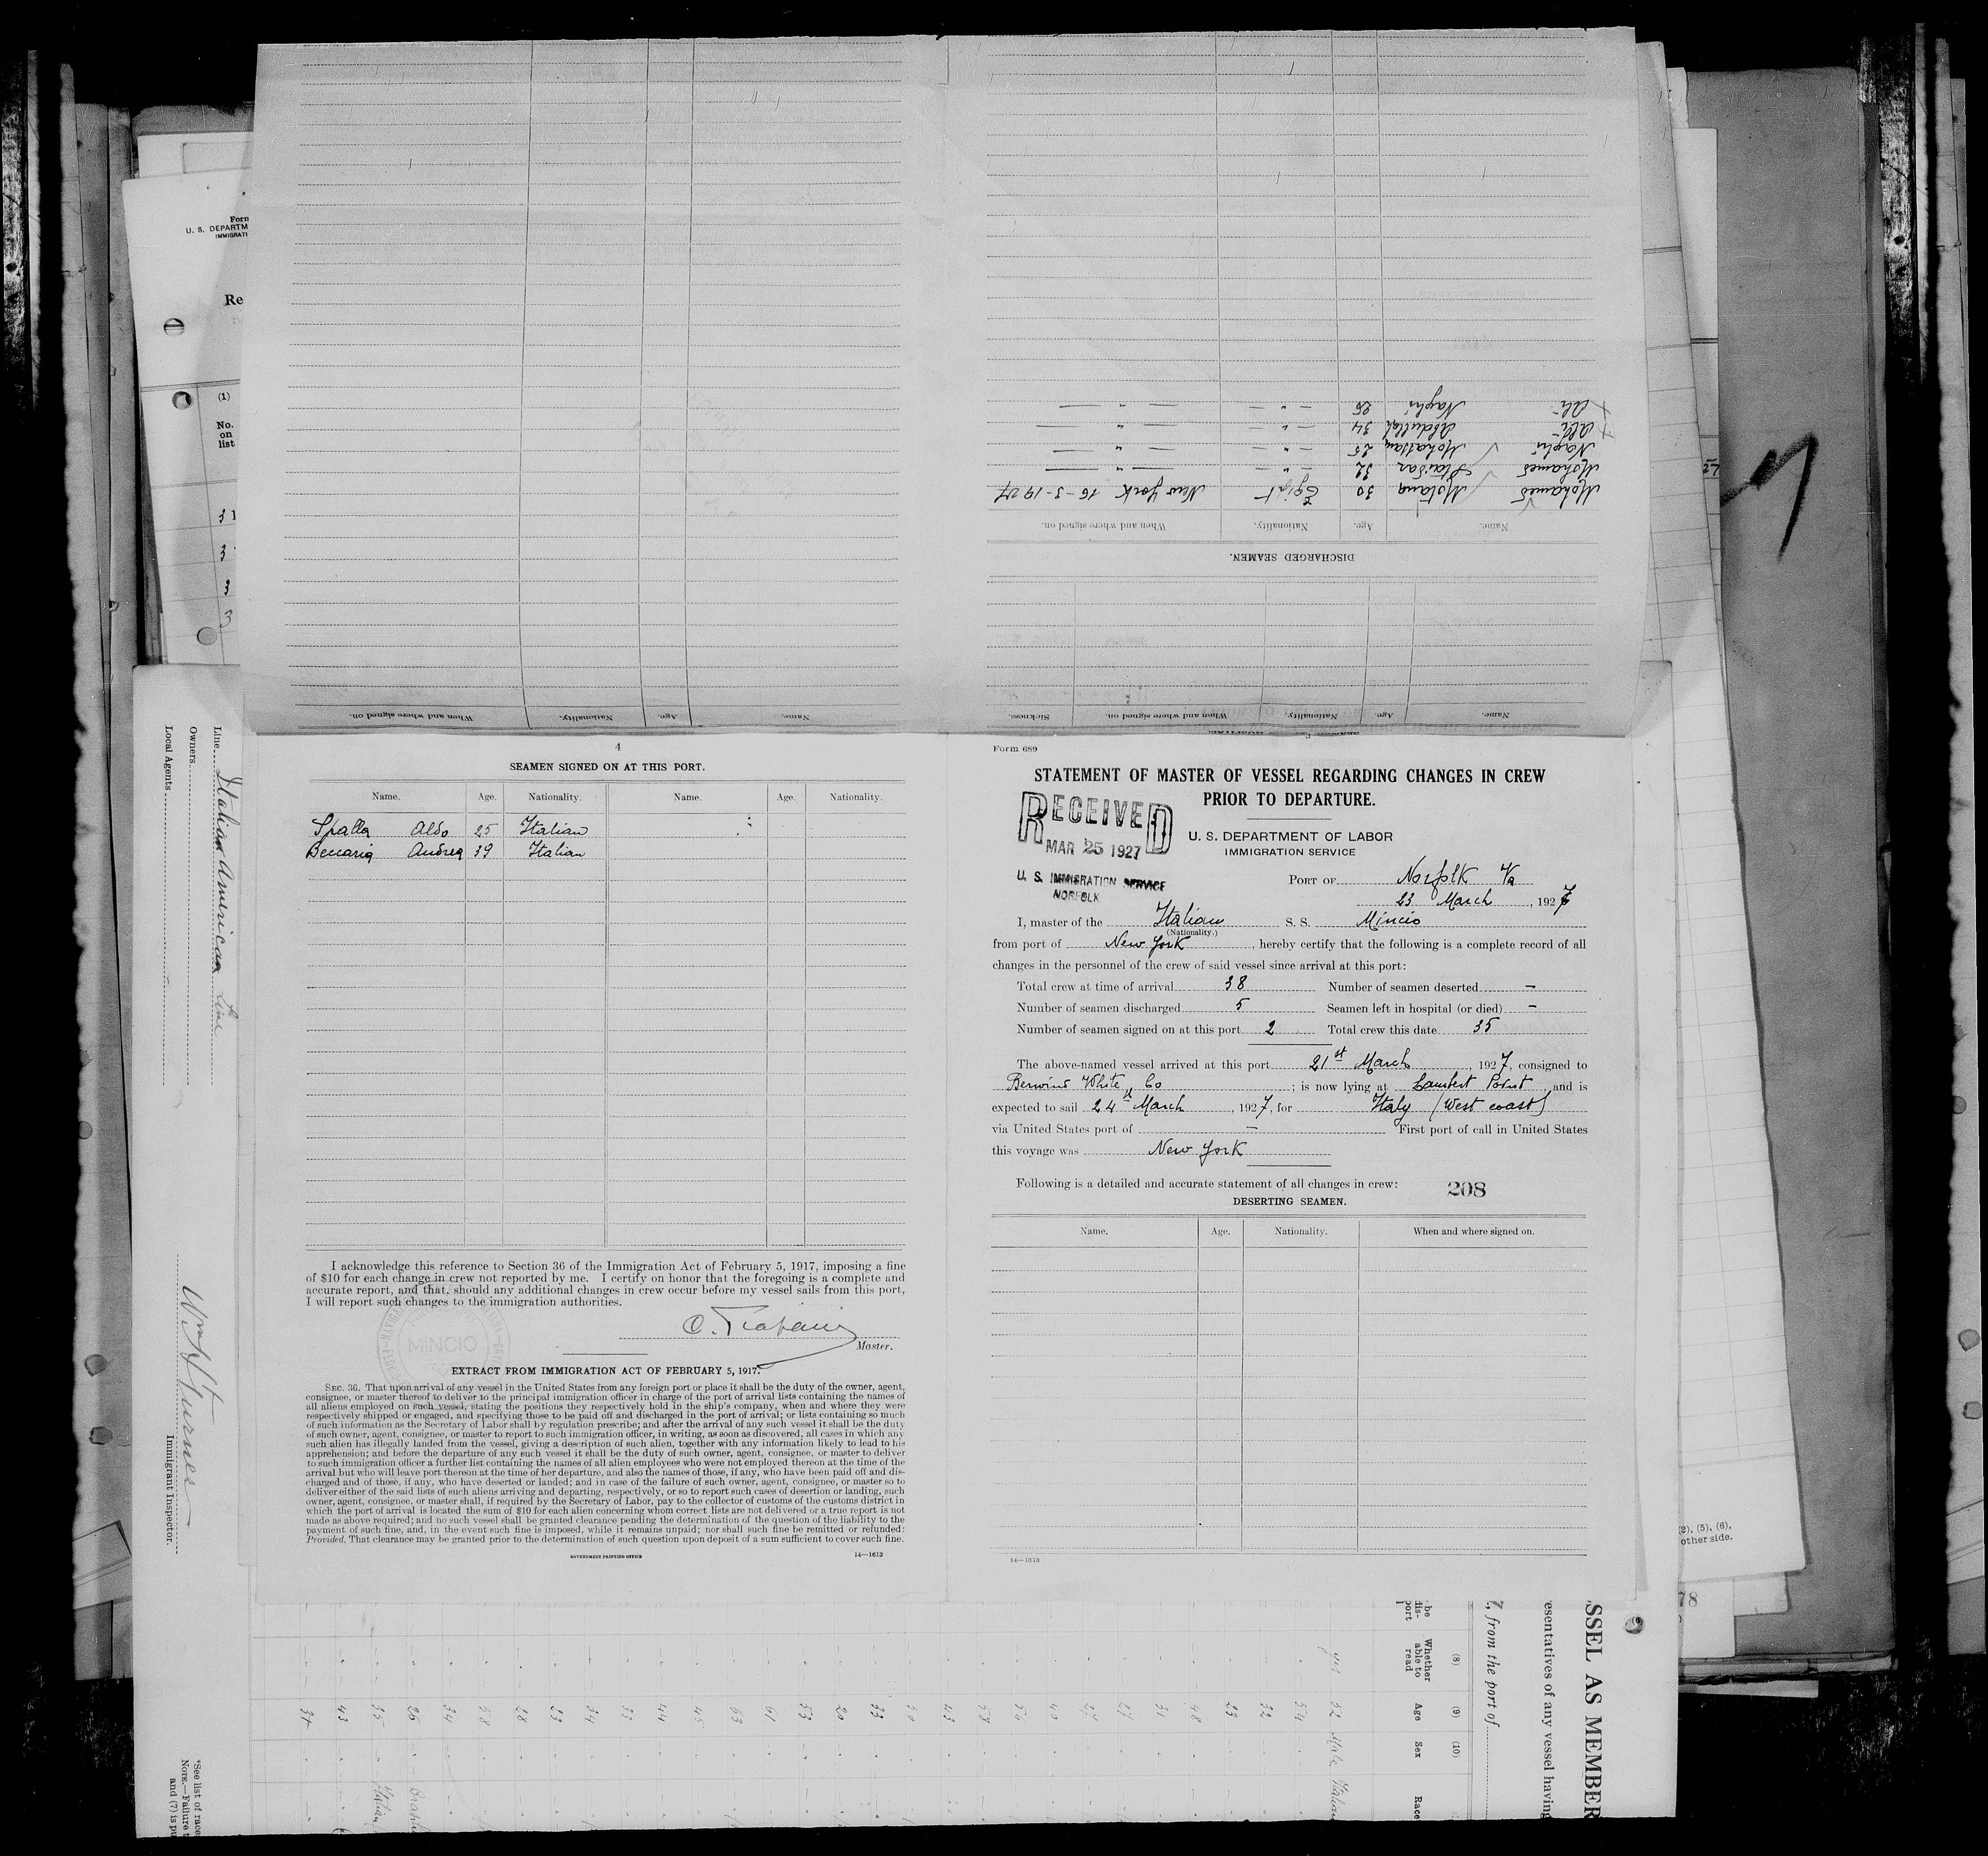 4
SEAMEN SIGNED ON AT THIS PORT.
Name. Age. Nationality. Name. Age. Nationality.
Spalla Aldo 25 Italian
Beccaria Andrea 39 Italian
I acknowledge this reference to Section 36 of the Immigration Act of February 5, 1917, imposing a fine
of $10 for each change in crew not reported by me. I certify on honor that the foregoing is a complete and
accurate report, and that, should any additional changes in crew occur before my vessel sails from this port,
I will report such changes to the immigration authorities.
MINCIO
Master.
EXTRACT FROM IMMIGRATION ACT OF FEBRUARY 5, 1917.
SEC. 36. That upon arrival of any vessel in the United States from any foreign port or place it shall be the duty of the owner, agent,
consignee, or master thereof to deliver to the principal immigration officer in charge of the port of arrival lists containing the names of
all aliens employed on such vessel, stating the positions they respectively hold in the ship's company, when and where they were
respectively shipped or engaged, and specifying those to be paid off and discharged in the port of arrival; or lists containing so much
of such information as the Secretary of Labor shall by regulation prescribe; and after the arrival of any such vessel it shall be the duty
of such owner, agent, consignee, or master to report to such immigration officer, in writing, as soon as discovered, all cases in which any
such alien has illegally landed from the vessel, giving a description of such alien, together with any information likely to lead to his
apprehension; and before the departure of any such vessel it shall be the duty of such owner, agent, consignee, or master to deliver
to such immigration officer a further list containing the names of all alien employees who were not employed thereon at the time of the
arrival but who will leave port thereon at the time of her departure, and also the names of those, if any, who have been paid off and dis-
charged and of those, if any, who have deserted or landed; and in case of the failure of such owner, agent, consignee, or master so to
deliver either of the said lists of such aliens arriving and departing, respectively, or so to report such cases of desertion or landing, such
owner, agent, consignee, or master shall, if required by the Secretary of Labor, pay to the collector of customs of the customs district in
which the port of arrival is located the sum of $10 for each alien concerning whom correct lists are not delivered or a true report is not
made as above required; and no such vessel shall be granted clearance pending the determination of the question of the liability to the
payment of such fine, and, in the event such fine is imposed, while it remains unpaid; nor shall such fine be remitted or refunded:
Provided, That clearance may be granted prior to the determination of such question upon deposit of a sum sufficient to cover such fine.
GOVERNMENT PRINTING OFFICE
14—1613
Form 689
STATEMENT OF MASTER OF VESSEL REGARDING CHANGES IN CREW
PRIOR TO DEPARTURE.
RECEIVED
MAR 25 1927
U. S. IMMIGRATION SERVICE
NORFOLK
U. S. DEPARTMENT OF LABOR
IMMIGRATION SERVICE
PORT OF Norfolk Va
23 March, 1927
I, master of the Italian S. S. Mincio
(Nationality.)
from port of New York, hereby certify that the following is a complete record of all
changes in the personnel of the crew of said vessel since arrival at this port:
Total crew at time of arrival 38 Number of seamen deserted –
Number of seamen discharged 5 Seamen left in hospital (or died) –
Number of seamen signed on at this port 2 Total crew this date 35
The above-named vessel arrived at this port 21st March, 1927, consigned to
Berwind White Co; is now lying at Lambert Point, and is
expected to sail 24th March, 1927, for Italy (West coast)
via United States port of – First port of call in United States
this voyage was New York
Following is a detailed and accurate statement of all changes in crew:
208
DESERTING SEAMEN.
Name. Age. Nationality. When and where signed on.
14—1613
Name. Age. Nationality. When and where signed on. Sickness.
DISCHARGED SEAMEN.
Name. Age. Nationality. When and where signed on.
Mohamed Motana 30 Egipt New York 16-3-1927
Mohamed 32 — " — — " —
Naghi Mohassam 25 — " — — " —
Ali Abdullah 34 — " — — " —
Ali Naghi 26 — " — — " —
Name. Age. Nationality. When and where signed on.
Form
U. S. DEPARTM
IMMIGRATI
Re
(1)
No.
on
list
Line Italian American Line
Owners
Local Agents
Immigrant Inspector.
*See list of race
NOTE.—Failure t
and (7) is pu
SSEL AS MEMBER
esentatives of any vessel having
7, from the port of
(8) (9) (10)
Whether able to read Age Sex Race
yes 52 Male Italian
(2), (5), (6),
other side.
78